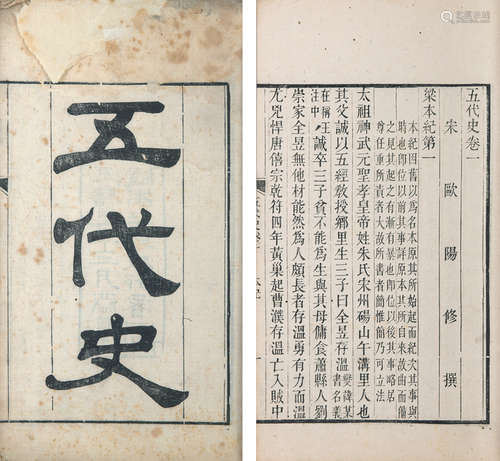 五代史
五代史卷一
宋歐陽修撰
梁本紀第一
本紀因舊以爲名本原其所始起而紀次其事與
時也卽位以前其事詳原本其所自來故曲而備
之見其起之有漸有暴也卽位以後其事略居
尊任重所責者大故所書者簡惟簡乃可立法
太祖神武元聖孝皇帝姓朱氏宋州碭山午溝里人也
其父誠以五經教授鄉里生三子曰全昱存溫變諱某書名義
在稱王注中誠卒三子貧不能爲生與其母傭食蕭縣人劉
崇家全昱無他材能然爲人頗長者存溫勇有力而溫
尤兇悍唐僖宗乾符四年黃巢起曹濮存溫亡入賊中